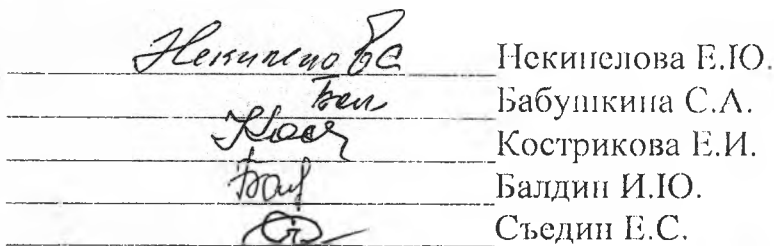 Некипелова Некипелова Е.Ю.
Бабушкина С.А.
Кострикова Е.И.
Балдин И.Ю.
Съедин Е.С.